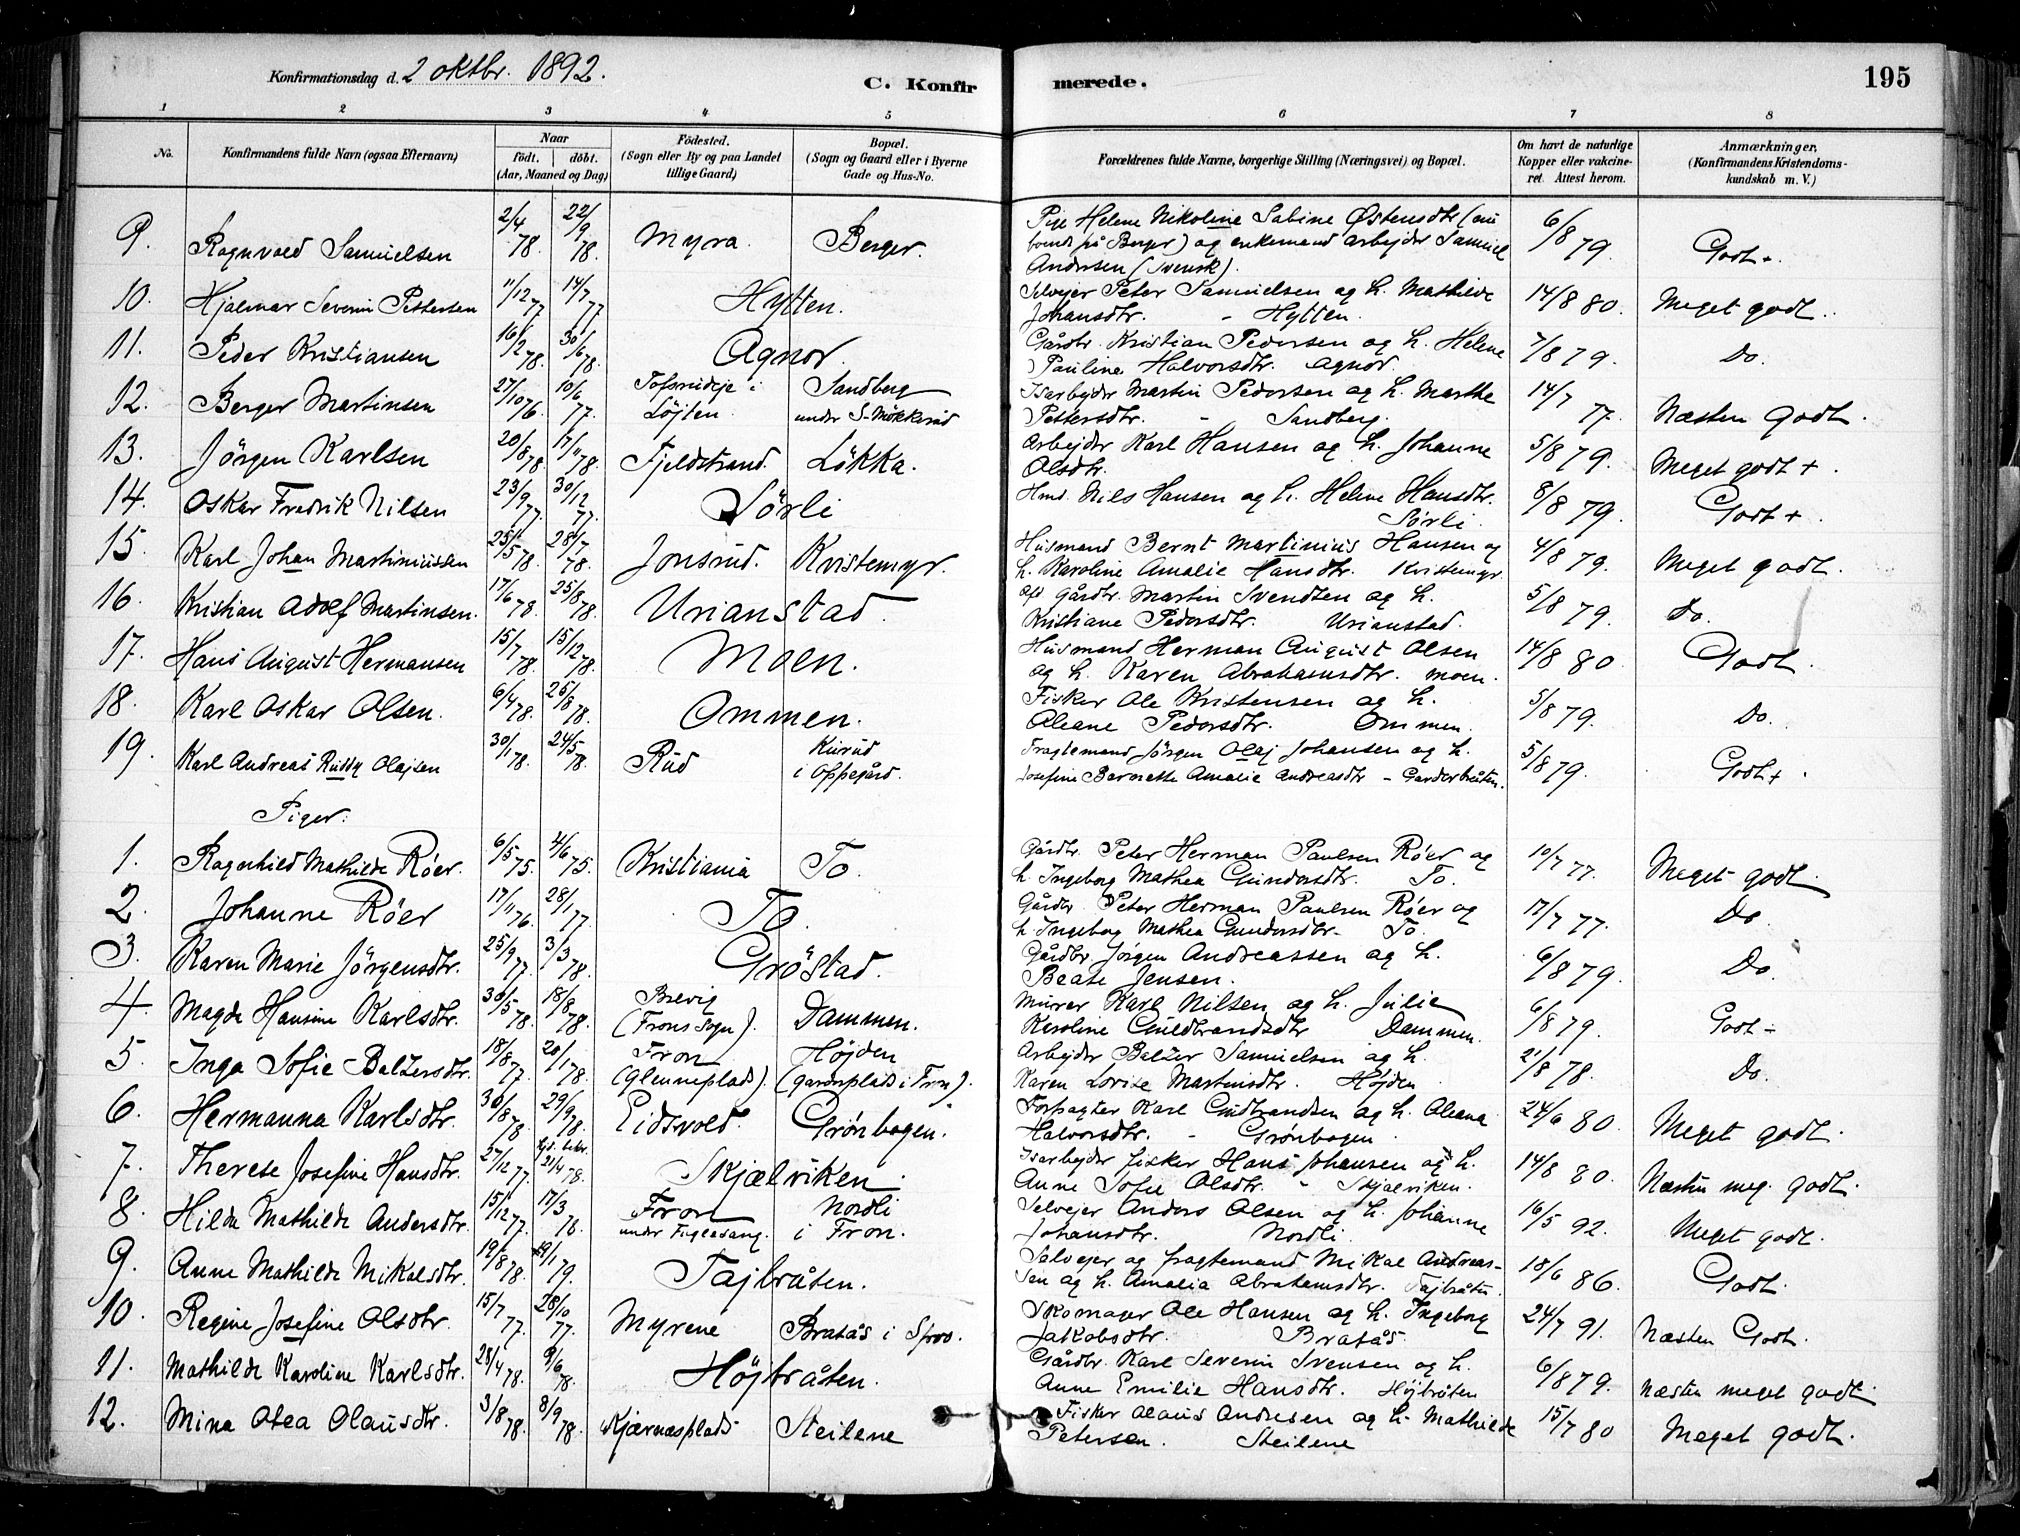 Konfirmationsdag d. 2 oktbr. 1892.
C. Konfirmerede.
195
1 2 3 4 5 6 7 8
No.
Konfirmandens fulde Navn (ogsaa Efternavn)
Naar
født. døbt.
(Aar, Maaned og Dag)
Fødested.
(Sogn eller By og paa Landet
tillige Gaard)
Bopæl.
(Sogn og Gaard eller i Byerne
Gade og Hus-No.
Forældrenes fulde Navne, borgerlige Stilling (Næringsvei) og Bopæl.
Om havt de naturlige
Kopper eller vakcine-
ret. Attest herom.
Anmærkninger,
(Konfirmandens Kristendoms-
kundskab m. V.)
9. Ragnvald Samuelsen 2/4 78. 22/9 78. Myra Berger. Pige Helene Nikoline Sabine Østensdtr (
på Berger) og enkemand arbejder Samuel
Andersen (svensk). 6/8 79. Godt+.
10. Hjalmar Severin Pettersen 11/12 77 14/7 77 Hytten. Selvejer Peter Samuelsen og h. Mathilde
Johansdtr. - Hytten. 14/8 80. Meget godt.
11. Peder Kristiansen 16/2 78. 30/6 78. Agnor. Gårdbr. Kristian Pedersen og h. Helene
Pauline Halvorsdtr. Agnor. 7/8 79. Do.
12. Berger Martinsen 27/10 76. 10/6 77. i
Løjten. Sandberg
under S. Mökkerud Isarbejder Martin Pedersen og h. Marthe
Pettersdtr. - Sandberg. 14/7 77. Næsten godt.
13. Jörgen Karlsen 20/8 78. 17/11 78. Fjeldstrand. Løkka. Arbejder Karl Hansen og h. Johanne
Olsdtr. 5/8 79. Meget godt +.
14. Oskar Fredrik Nilsen 23/9 77. 30/12 77. Sörli Hmd. Nils Hansen og h. Helene Hansdtr.
Sörli. 8/8 79. Godt +.
15. Karl Johan Martiniussen 25/5 78. 28/7 78. Jonsrud. Kristemyr. Husmand Bernt Martinius Hansen og
h. Karoline Amalie Hansdtr. Kristemyr. 4/8 79. Meget godt.
16. Kristian Adolf Martinsen. 17/6 78. 25/8 78. Urianstad. Gårdbr. Martin Svendsen og h.
Kristiane Pedersdtr. Urianstad. 5/8 79. Do.
17. Hans August Hermansen 15/7 78. 15/12 78. Moen. Husmand Herman August Olsen
og h. Karen Abrahamsdtr. Moen. 14/8 80. Godt.
18. Karl Oskar Olsen. 6/4 78. 25/8 78. Ommen. Fisker Ole Kristensen og h.
Oleane Pedersdtr. Ommen. 5/8 79. Do.
19. Karl Andreas Olajsen 30/1 78. 24/5 78. Rud Kurud
i Oppegård. Fragtemand Jörgen Olaj Johansen og h.
Josefine Amalie Andreasdtr - Garderbråten. 5/8 79. Godt+.
Piger.
1. Ragnhild Mathilde Röer. 6/5 75. 4/6 75. Kristiania To. Gårdbr. Peter Herman Paulsen Röer og
h. Ingeborg Mathea Gundersdtr. To. 10/7 77. Meget godt.
2. Johanne Röer 17/11 76. 28/1 77. To. Gårdbr. Peter Herman Paulsen Röer og
h. Ingeborg Mathea Gundersdtr. To. 17/7 77. Do
3. Karen Marie Jörgensdtr. 25/9 77. 3/3 78. Gröstad. Gårdbr. Jörgen Andreassen og h.
Beate Jensen. 6/8 79. Do
4. Magda Hansine Karlsdtr. 30/5 78. 18/8 78. Brevig
(Frons sogn). Dammen. Murer Karl Nilsen og h. Julie
Karoline Guldbrandsdtr Dammen. 6/8 79. Godt -
5. Inga Sofie Baltzersdtr. 18/8 77. 20/1 78. Fron
(Glenneplads). Højden
(i Fron). Arbejder Baltzer Samuelsen og h.
Karen Lovise Martinsdtr. Højden 21/8 78. Do.
6. Hermanna Karlsdtr. 30/8 78. 29/9 78. Eidsvold. Grönbogen. Forpagter Karl Gudbrandsen og h. Oleana
Halvorsdtr. - Grönbogen. 24/6 80. Meget godt.
7. Therese Josefine Hansdtr. 27/12 77. 21/4 78. Skjælviken. Isarbejder fisker Hans Johansen og h.
Anne Sofie Olsdtr. - Skjælviken. 14/8 80. Næsten meg. godt.
8. Hilda Mathilde Andersdtr. 15/12 77. 17/3 78. Fron
under Fuglesang. Nordli
i Fron. Selvejer Anders Olsen og h. Johanne
Johansdtr. Nordli. 16/5 92. Meget godt.
9. Anne Mathilde Mikalsdtr. 19/8 78. 19/1 79. Tajbråten. Selvejer og fragtemand Mikal Andreas-
sen og h. Amalia Abrahamsdtr. Tajbråten. 18/6 86. Godt.
10. Regine Josefine Olsdtr. 15/7 77. 28/10 77. Myrene Bråtås i Skomager Ole Hansen og h. Ingeborg
Jakobsdtr. Bråtås. 24/7 91. Næsten Godt.
11. Mathilde Karoline Karlsdtr. 28/4 78. 9/6 78. Højbråten. Gårdbr. Karl Severin Svensen og h.
Anne Emilie Hansdtr. Højbråten 6/8 79. Næsten meget godt.
12. Mina Olea Olausdtr. 3/8 78. 8/9 78. Kjærnæsplads Steilene Fisker Olaus Andresen og h. Mathilde
Petersen. Steilene 15/7 80 Meget godt.